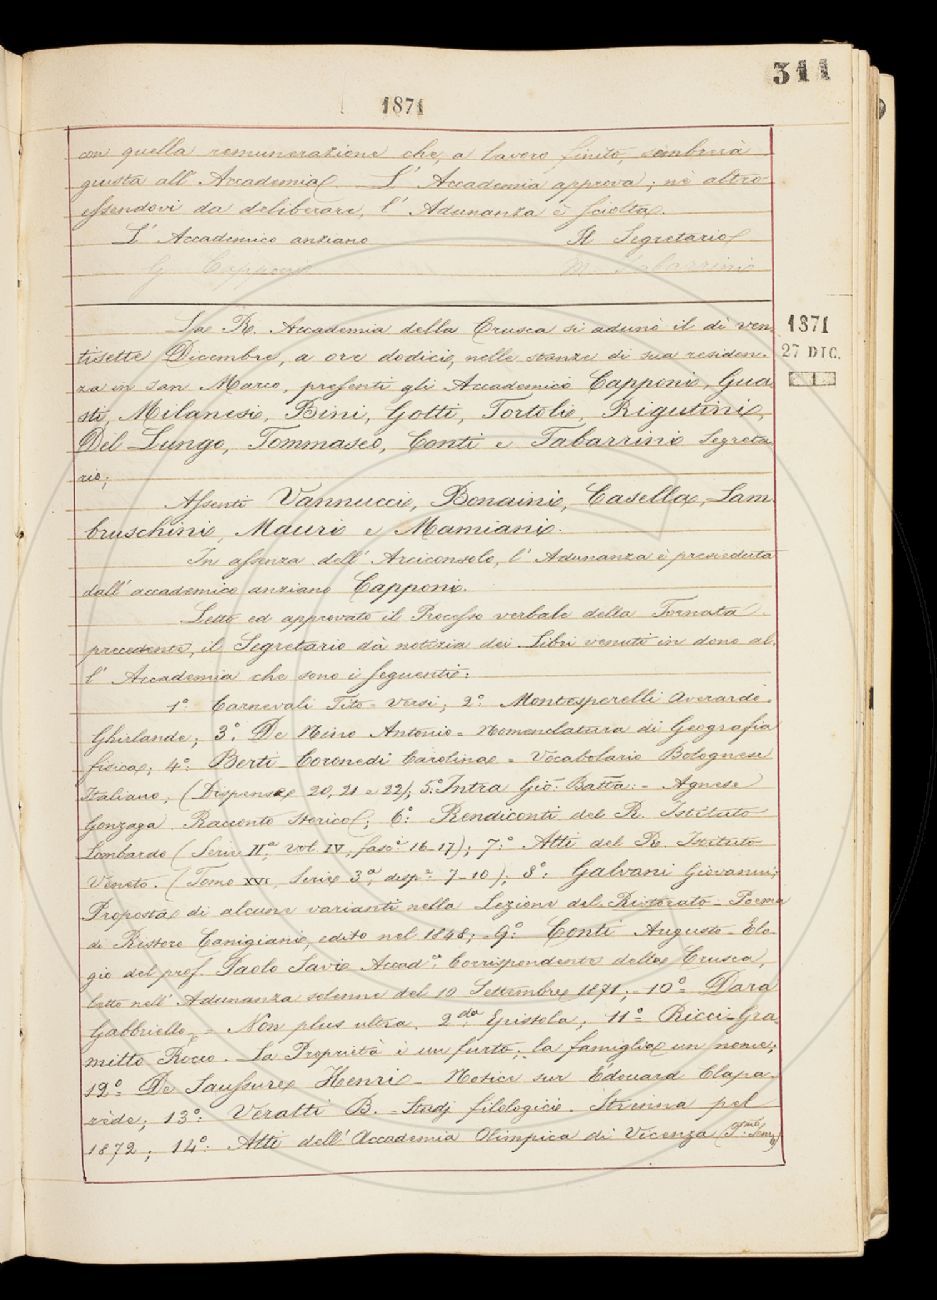 311
1871
con quella remunerazione che, a lavoro finito, sembrerà
giusta all' Accademia. L' Accademia approva; nè altro
essendovi da deliberare, l' Adunanza è sciolta.
L' Accademico anziano Il Segretario
G. Capponi M. Tabarrini
La R. Accademia della Crusca si adunò il dì ven-
tisette Dicembre, a ore dodici, nelle stanze di sua residen-
za in San Marco, presenti gli Accademici Capponi, Gua-
sti, Milanesi, Bini, Gotti, Tortoli, Rigutini,
Del Lungo, Tommaseo, Conti e Tabarrini Segreta-
rio;
1871
27 DIC.
1
Assenti Vannucci, Bonaini, Casella, Lam-
bruschini, Mauri e Mamiani.
In assenza dell' Arciconsolo, l' Adunanza è presieduta
dall' accademico anziano Capponi.
Letto ed approvato il Processo verbale della Tornata
precedente, il Segretario dà notizia dei Libri venuti in dono al-
l' Accademia che sono i seguenti:
1º Carnevali Tito - Versi; 2º Montesperelli Averardo -
Ghirlande; 3º De Nino Antonio - Nomenclatura di Geografia
fisica; 4º: Berti - Coronedi Carolina - Vocabolario Bolognese
Italiano, (Dispense 20, 21 e 22); 5º: Intra Gio. Batta: - Agnese
Gonzaga Racconto storico; 6º: Rendiconti del R. Istituto
Lombardo (Serie IIª, vol. IV, fasc.º 16-17); 7º: Atti del R. Istituto
Veneto. (Tomo XVI, Serie 3ª, disp.ª 7-10); 8º: Galvani Giovanni;
Proposta di alcune varianti nella Lezione del Ristorato - Poema
di Ristoro Canigiani, edito nel 1848; 9º: Conti Augusto - Elo-
gio del prof. Paolo Savi Accad.º Corrispondente della Crusca,
letto nell' Adunanza solenne del 10 Settembre 1871; 10º Dara
Gabbriello, - Non plus ultra. 2.da Epistola; 11º - Ricci-Gra-
mitto Rocco. La Proprietà è un furto; la famiglia un nome;
12º De Saussure Henri - Notice sur Édouard Clapa-
rède; 13º: Veratti B. - Studj filologici. Strenna pel
1872; 14º: Atti dell' Accademia Olimpica di Vicenza